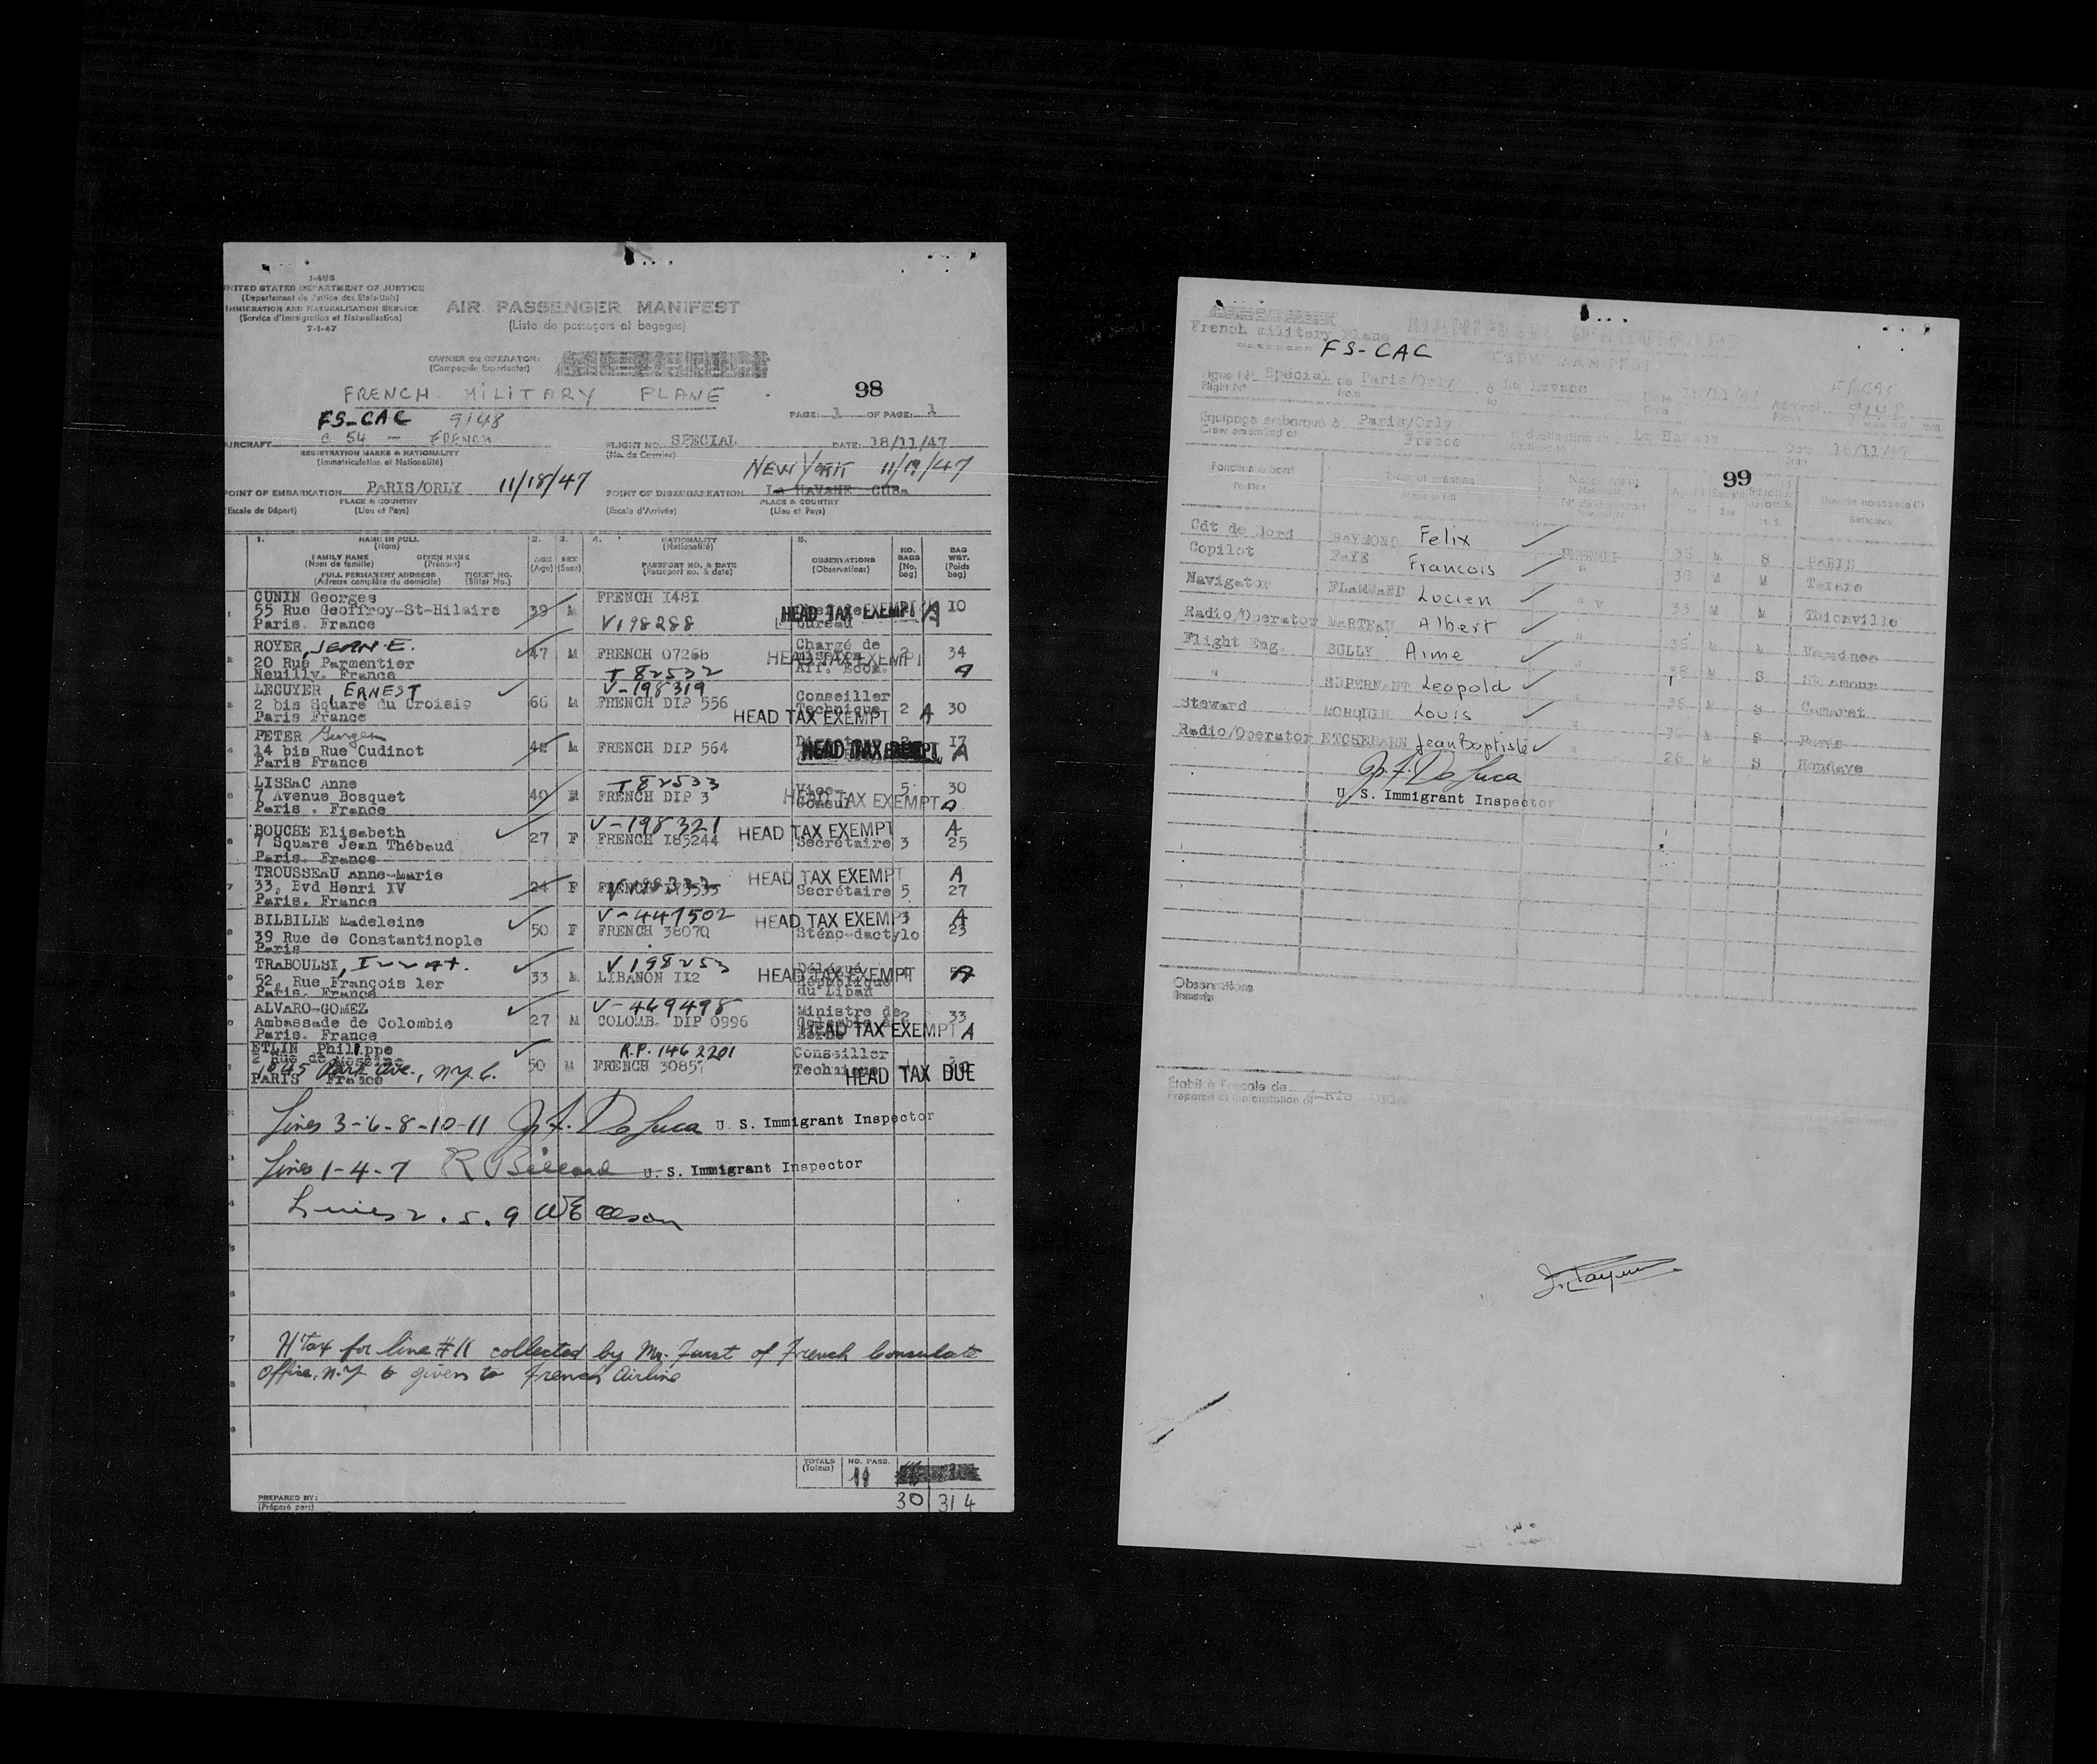 I-466
UNITED STATES DEPARTMENT OF JUSTICE
(Departement de Justice des Etats-Unis)
IMMIGRATION AND NATURALIZATION SERVICE
(Service d'Immigration et Naturalisation)
7-1-47
AIR PASSENGER MANIFEST
(Liste de passagers et bagages)
OWNER OR OPERATOR:
(Compagnie Exportante)
98
FRENCH MILITARY PLANE
PAGE: 1 OF PAGE: 1
FS-CAC 9148
AIRCRAFT C 54 - FRENCH
FLIGHT NO. SPECIAL DATE: 18/11/47
REGISTRATION MARKS & NATIONALITY
(No. de Courrier)
(Immatriculation et Nationalité)
NEW YORK 11/19/47
POINT OF EMBARKATION PARIS/ORLY 11/18/47 POINT OF DISEMBARKATION La HAVANE CUBA
PLACE & COUNTRY PLACE & COUNTRY
(Escale de Départ) (Lieu et Pays) (Escale d'Arrivée) (Lieu et Pays)
1. NAME IN FULL 2. 3. 4. NATIONALITY 5. NO. BAGS BAG WGT.
(Nom) (Nationalité)
FAMILY NAME GIVEN NAME AGE SEX OBSERVATIONS
(Nom de famille) (Prénom) (Age) (Sexe) PASSPORT NO. & DATE (Observations) (No. bag) (Poids bag)
FULL PERMANENT ADDRESS TICKET NO. (Passeport no. & date)
(Adresse complète du domicile) (Billet No.)
CUNIN Georges FRENCH I48I
55 Rue Geoffroy-St-Hilaire 39 M HEAD TAX EXEMPT A 10
Paris. France V198288 bureau
ROYER, JEAN E. Chargé de
20 Rue Parmentier 47 M FRENCH 07268 HEAD TAX EXEMPT 2 34
Neuilly. France T 82532 Aff. Econ. A
LECUYER, ERNEST V-198319 Conseiller
2 bis Square du Croisic 66 M FRENCH DIP 556 Technique 2 A 30
Paris France HEAD TAX EXEMPT
PETER Georges 17
14 bis Rue Oudinot M FRENCH DIP 564 HEAD TAX EXEMPT A
Paris France
LISSAC Anne T82533 Vice- 5 30
7 Avenue Bosquet 40 FRENCH DIP 3 Consul
Paris . France HEAD TAX EXEMPT A
BOUCHE Elisabeth V-198321 HEAD TAX EXEMPT A
7 Square Jean Thébaud 27 F FRENCH I85244 Secrétaire 3 25
Paris. France
TROUSSEAU Anne-Marie HEAD TAX EXEMPT A
33, Bvd Henri IV 24 F FRENCH Secrétaire 5 27
Paris. France
BILBILLE Madeleine V-447502 HEAD TAX EXEMPT 3 A
39 Rue de Constantinople 50 F FRENCH 38070 Sténo-dactylo 23
Paris
TRABOULSI, V198253 Délégué
52, Rue François 1er 33 M LIBANON II2 HEAD TAX EXEMPT République A
Paris. France du Liban
ALVARO-GOMEZ V-469498 Ministre de
Ambassade de Colombie 27 M COLOMB. DIP 0996 2 33
Paris. France HEAD TAX EXEMPT A
ETLIN Philippe R.P. 1462201 Conseiller
1045 Park Ave., N.Y.C. 50 M FRENCH 30857 Technique
PARIS France HEAD TAX DUE
Lines 3-6-8-10-11 J. F. De Luca U. S. Immigrant Inspector
Lines 1-4-7 U. S. Immigrant Inspector
Lines 2. 5. 9
H Tax for line #11 collected by Mr. Furst of French Consulate
Office, N.Y. & given to French Airline
TOTALS NO. PASS.
(Totaux) 11
30 314
PREPARED BY:
(Préparé par:)
French military Plane
FS-CAC
CREW MANIFEST
Ligne No Special de Paris/Orly à La Havane Date 18/11/47 FS-CAC
Flight No from to Date 9148
Equipage embarqué à Paris/Orly destination La Havane Date 18/11/47
Crew embarked at France
99
Fonction à bord Noms et prénoms
Position
Cdt de Bord RAYMOND Felix 36 M S PARIS
Copilot FAYE Francois 38 M M Tarare
Navigator FLAMMAND Lucien 33 M M Thionville
Radio/Operator MARTEAU Albert M
Flight Eng. BULLY Aime 38 M S St Amour
" SUPERNANT Leopold 36 M S Camaret
Steward MORQUIN Louis S Paris
Radio/Operator ETCHEBARN Jean Baptiste 26 M S Hendaye
J. F. De Luca
U. S. Immigrant Inspector
Observations
Remarks
Etabli à l'escale de
Prepared at the station of